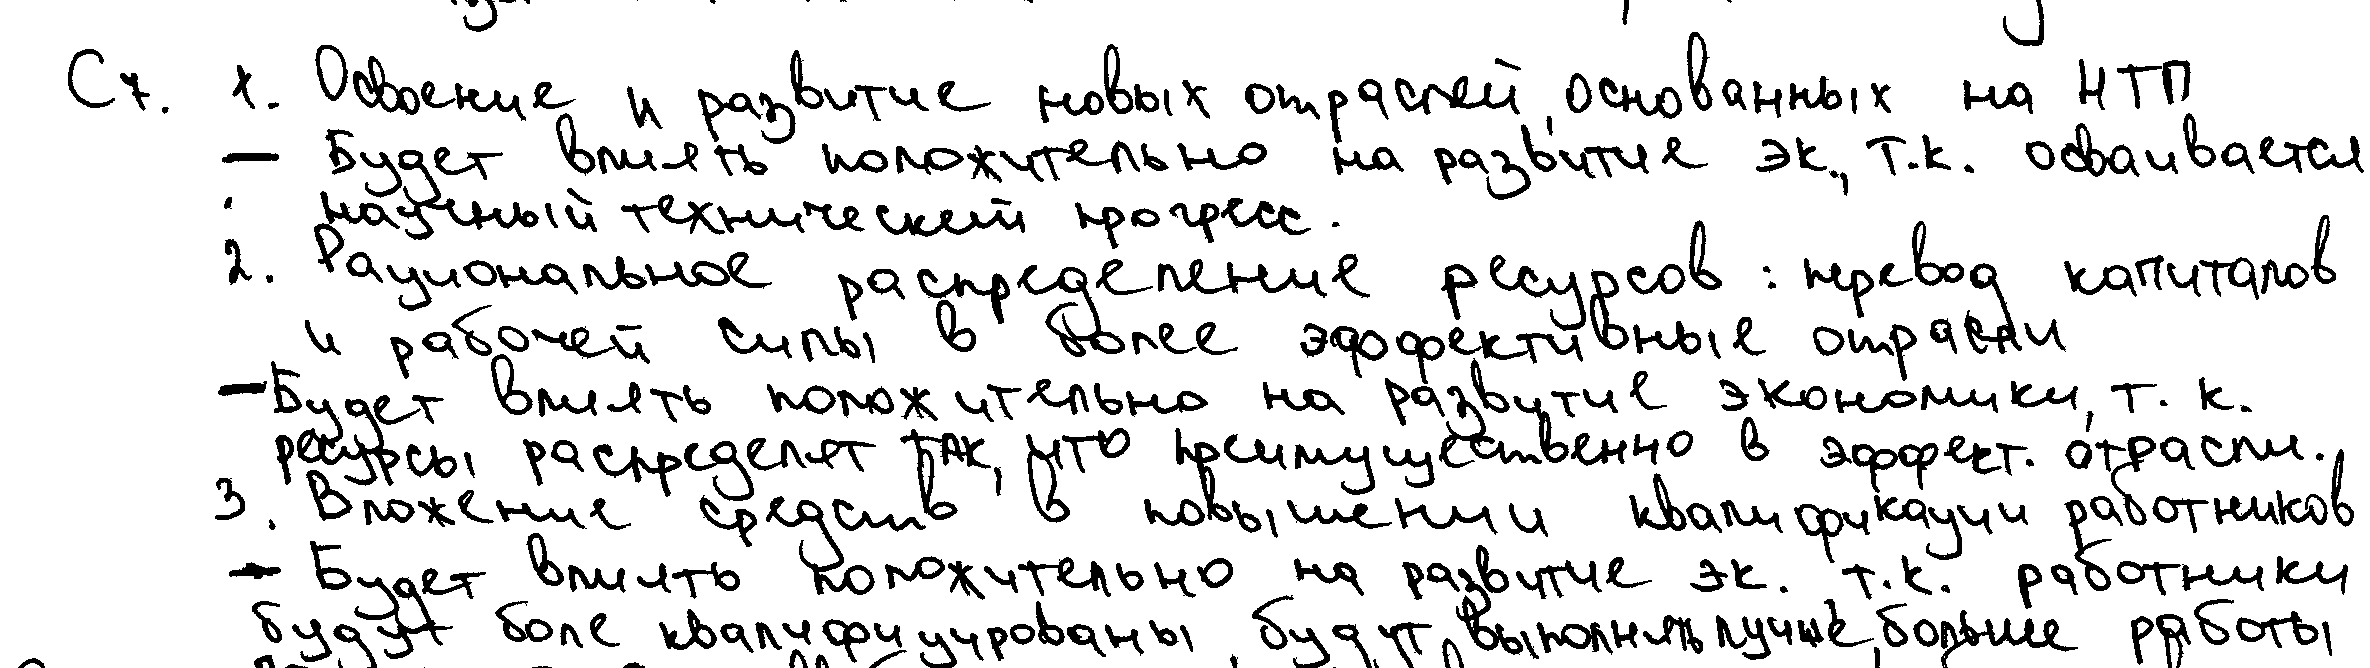 С7. 1. Освоение и развитие новых отраслей, основанных на НТП
— Будет влиять положительно на развитие эк., т.к. осваивается
научный технический прогресс.
2. Рациональное распределение ресурсов: перевод капиталов
и рабочей силы в более эффективные отрасли
— Будет влиять положительно на развитие экономики, т.к.
ресурсы распределят так, что преимущественно в эффект. отрасли.
3. Вложение средств в повышении квалификации работников
— Будет влиять положительно на развитие эк. т.к. работники
будут боле квалифицированы, будут выполнять лучше, больше работы